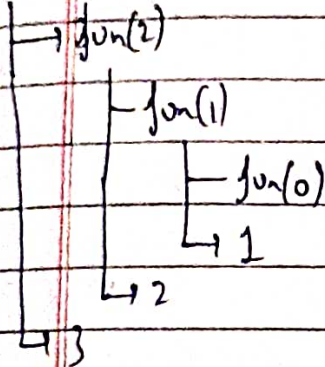 fun(2)
fun(1)
fun(0)
1
2
3